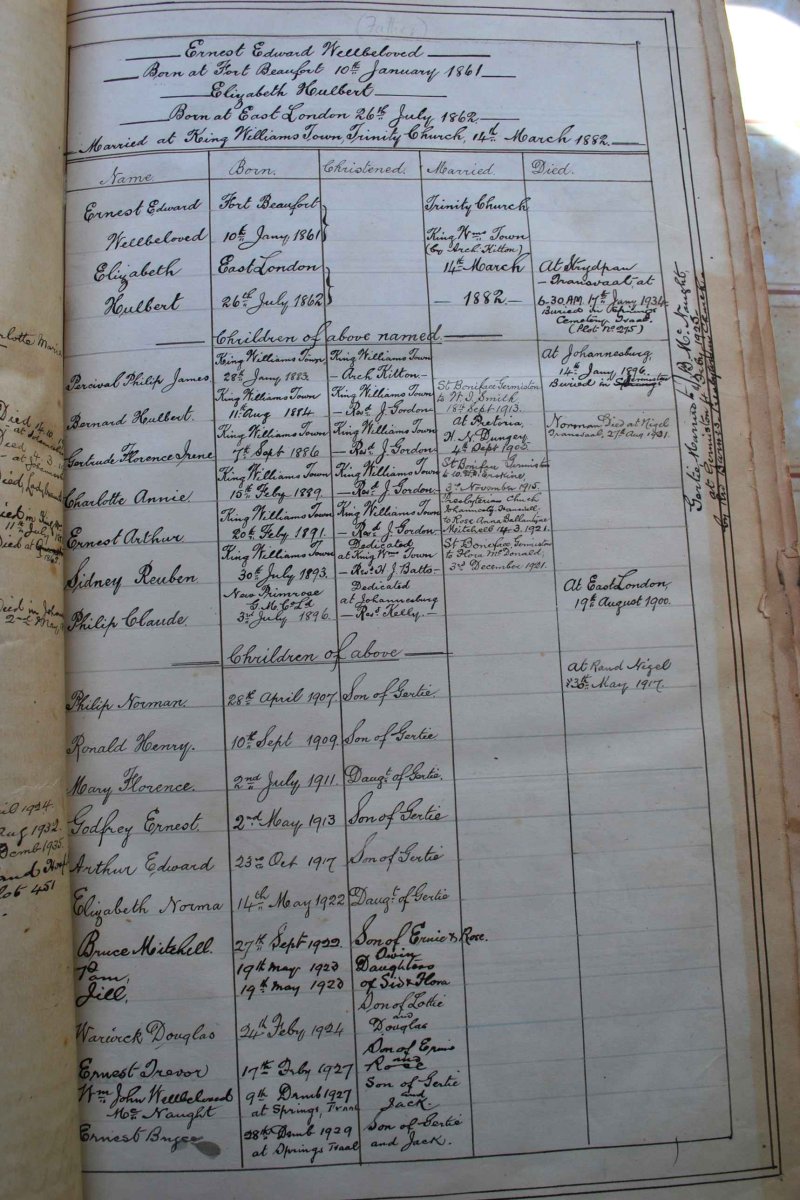 (Father)
Ernest Edward Wellbeloved
Born at Fort Beaufort 10th January 1861
Elizabeth Hulbert
Born at East London 26th July 1862
Married at King Williams Town, Trinity Church, 14th March 1882.
Name. Born. Christened. Married. Died.
Ernest Edward Fort Beaufort Trinity Church
Wellbeloved 10th Jany 1861 King Wms Town
(by Arch Kitton)
Elizabeth East London 14th March At Strydpan
Transvaal, at
Hulbert 26th July 1862 1882 6-30 A.M. 17th Jany 1934
Buried in Springs
Cemetery Tvaal.
(Plot No 275)
Children of above named
King Williams Town King Williams Town At Johannesburg,
Percival Philip James 28th Jany 1883. Arch Kitton 14th Jany 1896.
Buried in Germiston
King Williams Town King Williams Town St Boniface Germiston
to W. J. Smith
Bernard Hulbert. 11th Aug 1884 Revd J. Gordon 18th Sept 1913.
King Williams Town King Williams Town At Pretoria, Norman Died at Nigel
H. N. Dungey Transvaal, 27th Aug 1921.
Gertrude Florence Irene 7th Sept 1886 Revd J. Gordon 4th Sept 1905.
King Williams Town King Williams Town St Boniface Germiston
Charlotte Annie 15th Feby 1889. Revd J. Gordon 3rd November 1915.
King Williams Town King Williams Town Presbyterian Church
Johannesburg Transvaal
to Rose Anna Ballantyne
Ernest Arthur 20th Feby 1891. Revd J. Gordon Mitchell 14.3.1921.
King Williams Town Dedicated St Boniface Germiston
at King Wm Town to Flora McDonald,
Sidney Reuben 30th July 1893. Revd H J Batts 3rd December 1921.
New Primrose Dedicated At East London,
G. M. Co Ld at Johannesburg
Philip Claude. 3rd July 1896. Revd Kelly. 19th August 1900.
Children of above
At Rand Nigel
Philip Norman. 28th April 1907 Son of Gertie. May 1917.
Ronald Henry. 10th Sept 1909. Son of Gertie
Mary Florence. 2nd July 1911. Daugt. of Gertie.
Godfrey Ernest. 2nd May 1913 Son of Gertie
Arthur Edward 23rd Oct 1917 Son of Gertie
Elizabeth Norma 14th May 1922 Daugt. of Gertie
Bruce Mitchell. 27th Sept 1922. Son of Ernie & Rose.
Pam, 19th May 1923 Twin Daughters
Jill, 19th May 1923 of Sid & Flora
Warwick Douglas 24th Feby 1924 Son of Lottie
and
Douglas
Ernest Trevor 17th Feby 1927 Son of Ernie
and
Rose
Wm John Wellbeloved 9th Dcmb 1927 Son of Gertie
McNaught at Springs, Tvaal and
Jack.
Ernest Bruce 28th Dcmb 1929 Son of Gertie
at Springs Tvaal and Jack.
Gertie Married to J. B. McNaught,
at Germiston Feby 1926